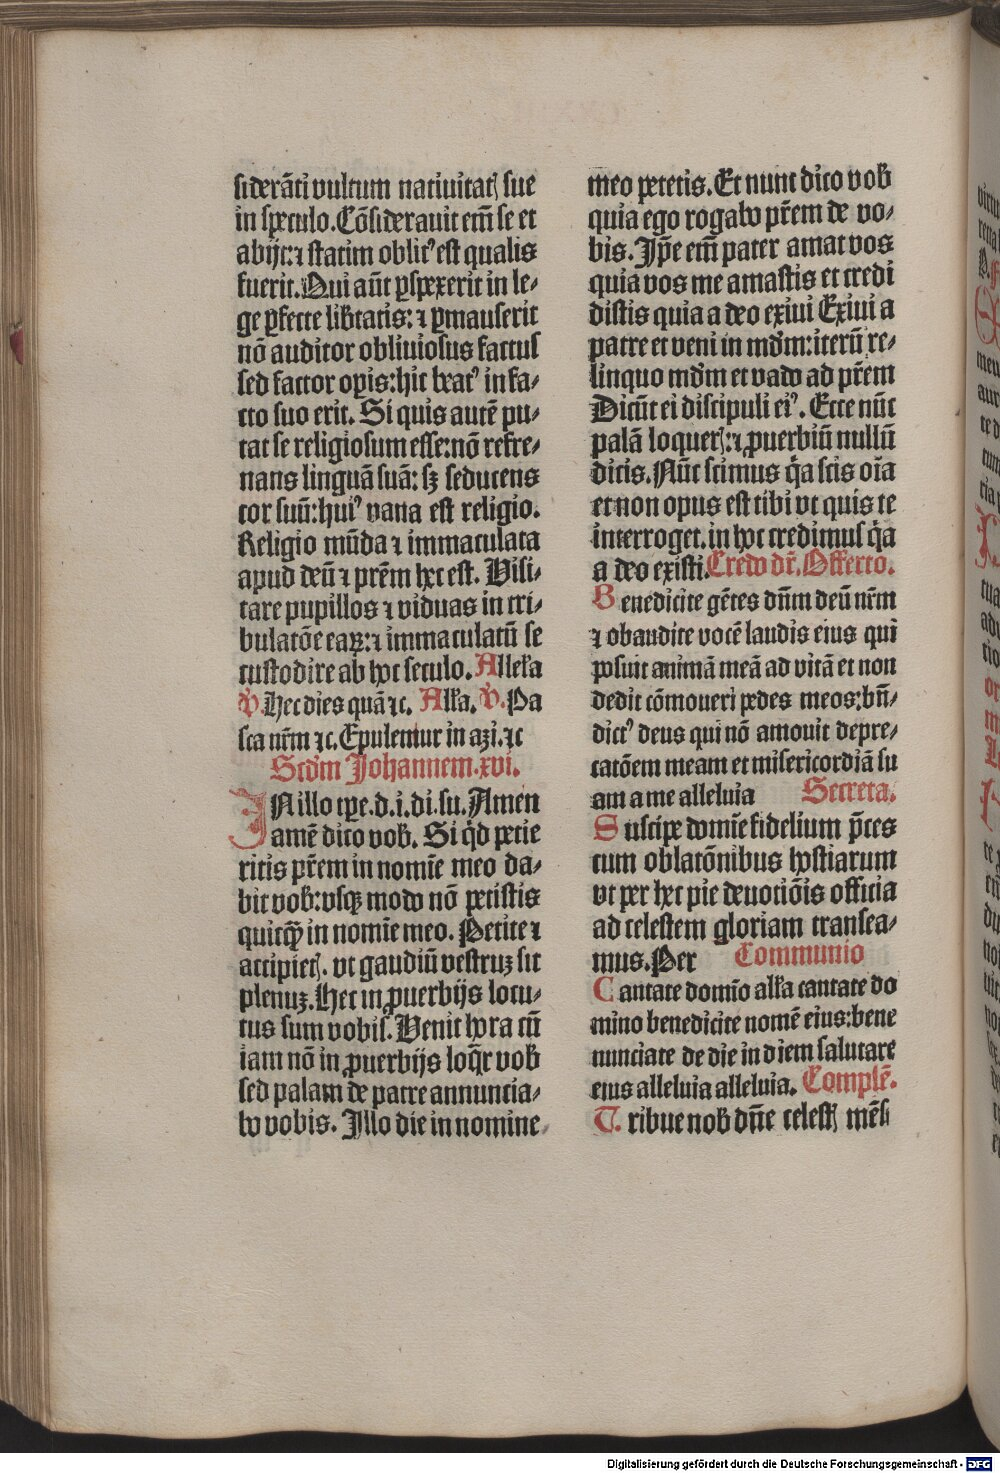 siderāti vultum natiuitatꝭ sue
in speculo. Cōsiderauit em̄ se et
abijt: ⁊ statim oblitꝰ est qualis
fuerit. Qui aūt ꝑspexerit in le⸗
ge ꝑfecte lib̄tatis: ⁊ ꝑmanserit
nō auditor obliuiosus factus
sed factor oꝑis: hic beatꝰ in fa⸗
cto suo erit. Si quis autē pu⸗
tat se religiosum esse: nō refre⸗
nans linguā suā: sꝫ seducens
cor suū: huiꝰ vana est religio.
Religio mūda ⁊ immaculata
apud deū ⁊ pr̄em hec est. Visi⸗
tare pupillos ⁊ viduas in tri⸗
bulatōe eaꝝ: ⁊ immaculatū se
custodire ab hoc seculo. Allel̄a
℣. Hec dies quā ⁊c. All̄a. ℣. Pa
sca nr̄m ⁊c. Epulemur in azi. ⁊c
Scd̄m Johannem. xvi.
IN illo tꝑe. d. i. di. su. Amen
amē dico vob̄. Si qͥd petie
ritis pr̄em in nomīe meo da⸗
bit vob̄: vsqꝫ modo nō petistis
quicqͣꝫ in nomīe meo. Petite ⁊
accipietꝭ. vt gaudiū vestruꝫ sit
plenuꝫ. Hec in ꝓuerbijs locu⸗
tus sum vobis. Venit hora cū
iam nō in ꝓuerbijs loq̄r vob̄
sed palam de patre annuncia⸗
bo vobis. Illo die in nomine
meo petetis. Et nunc dico vob̄
quia ego rogabo pr̄em de vo⸗
bis. Ip̄e em̄ pater amat vos
quia vos me amastis et credi
distis quia a deo exiui Exiui a
patre et veni in md̄m: iterū re⸗
linquo md̄m et vado ad pr̄em
Dicūt ei discipuli eiꝰ. Ecce nūc
palā loquerꝭ: ⁊ ꝓuerbiū nullū
dicis. Nūc scimus qͣa scis oīa
et non opus est tibi vt quis te
interroget. in hoc credimus qͣa
a deo existi. Credo dr̄. Offerto.
Benedicite gētes dn̄m deū nr̄m
⁊ obaudite vocē laudis eius qui
posuit animā meā ad vitā et non
dedit cōmoueri pedes meos: bn̄⸗
dictꝰ deus qui nō amouit depre⸗
catōem meam et misericordiā su
am a me alleluia Secreta.
Suscipe domīe fidelium p̄ces
cum oblatōnibus hostiarum
vt per hec pie deuotiōis officia
ad celestem gloriam transea⸗
mus. Per Communio
Cantate domīo all̄a cantate do
mino benedicite nomē eius: bene
nunciate de die in diem salutare
eius alleluia alleluia. Complē.
Tribue nob̄ dn̄e celestꝭ mēs
Digitalisierung gefördert durch die Deutsche Forschungsgemeinschaft - DFG